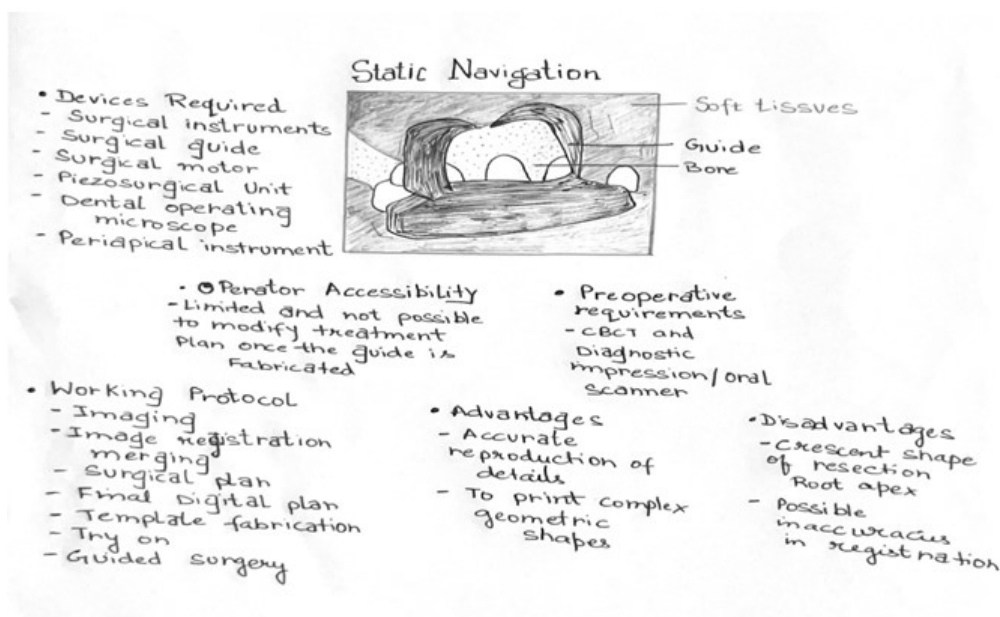 Static Navigation
• Devices Required
- Surgical instruments
- Surgical guide
- Surgical motor
- Piezosurgical Unit
- Dental operating
microscope
- Periapical instrument
Soft tissues
Guide
Bone
• Operator Accessibility
- Limited and not possible
to modify treatment
Plan once the guide is
Fabricated
• Preoperative
requirements
- CBCT and
Diagnostic
impression/oral
Scanner
• Working Protocol
- Imaging
- Image registration
merging
- Surgical plan
- Final Digital plan
- Template fabrication
- Try on
- Guided Surgery
• Advantages
- Accurate
reproduction of
details
- To print complex
geometric
Shapes
• Disadvantages
- Crescent shape
of resection
Root apex
- Possible
inaccuracies
in registration